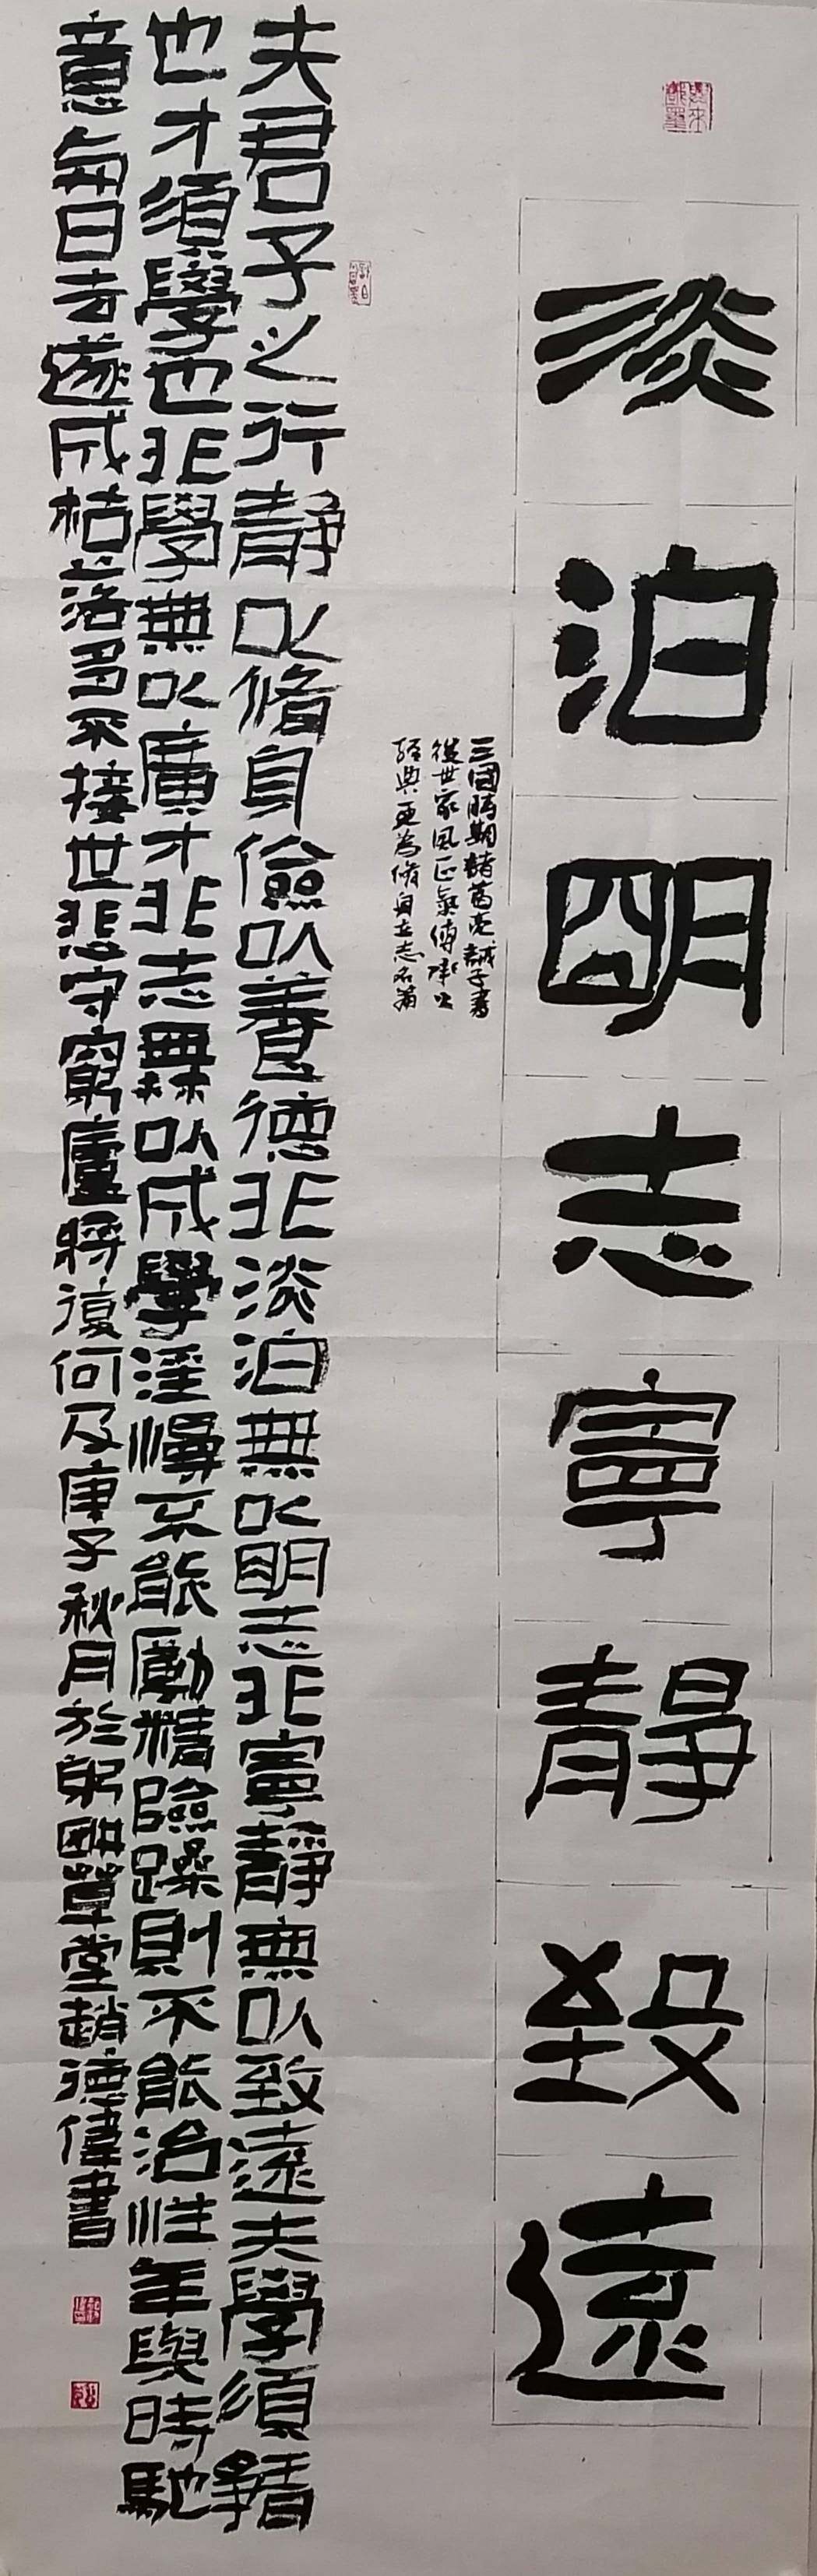 淡泊明志寧靜致遠
三國時期諸葛亮誡子書
後世家風正氣傳承之
經典更為脩身立志名篇
夫君子之行靜以脩身儉以養德非淡泊無以明志非寧靜無以致遠夫學須靜
也才須學也非學無以廣才非志無以成學淫慢不能勵精險躁則不能治性年與時馳
意日去遂成枯落多不接世悲守窮廬將復何及庚子秋月於躬耕草堂趙德偉書